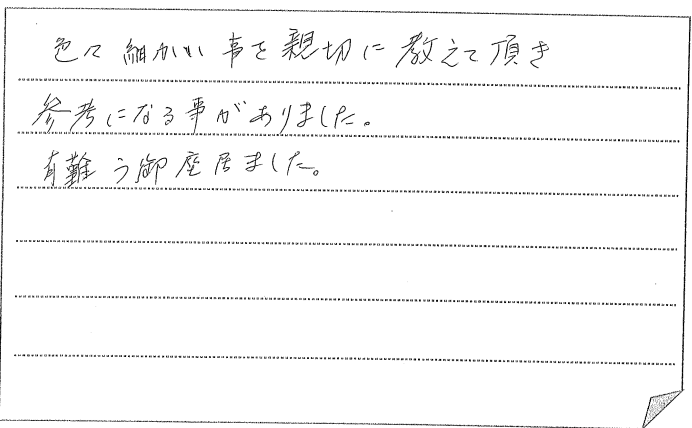 色々細かい事を親切に教えて頂き
参考になる事がありました。
有難う御座居ました。